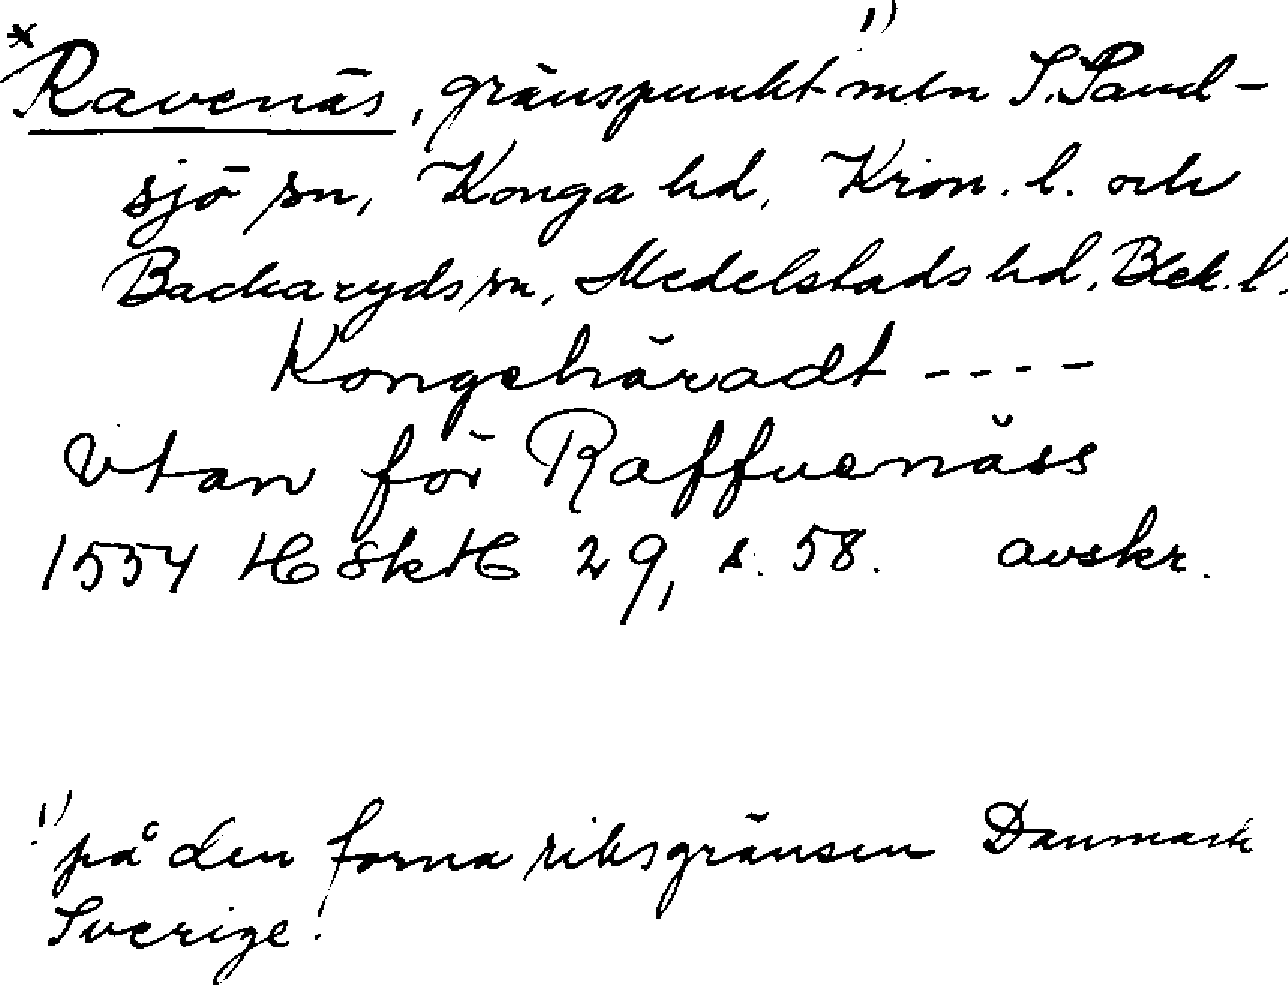 *Ravenäs, gränspunkt 1) mln S. Sand-
sjö sn, Konga hd, Kron. l. och
Backaryds sn, Medelstads hd, Blek. l.
Kongehäradt ----
Vtan för Raffuenäss
1554 HSkH 29, s. 58. avskr.
1) på den forna riksgränsen Danmark
Sverige.